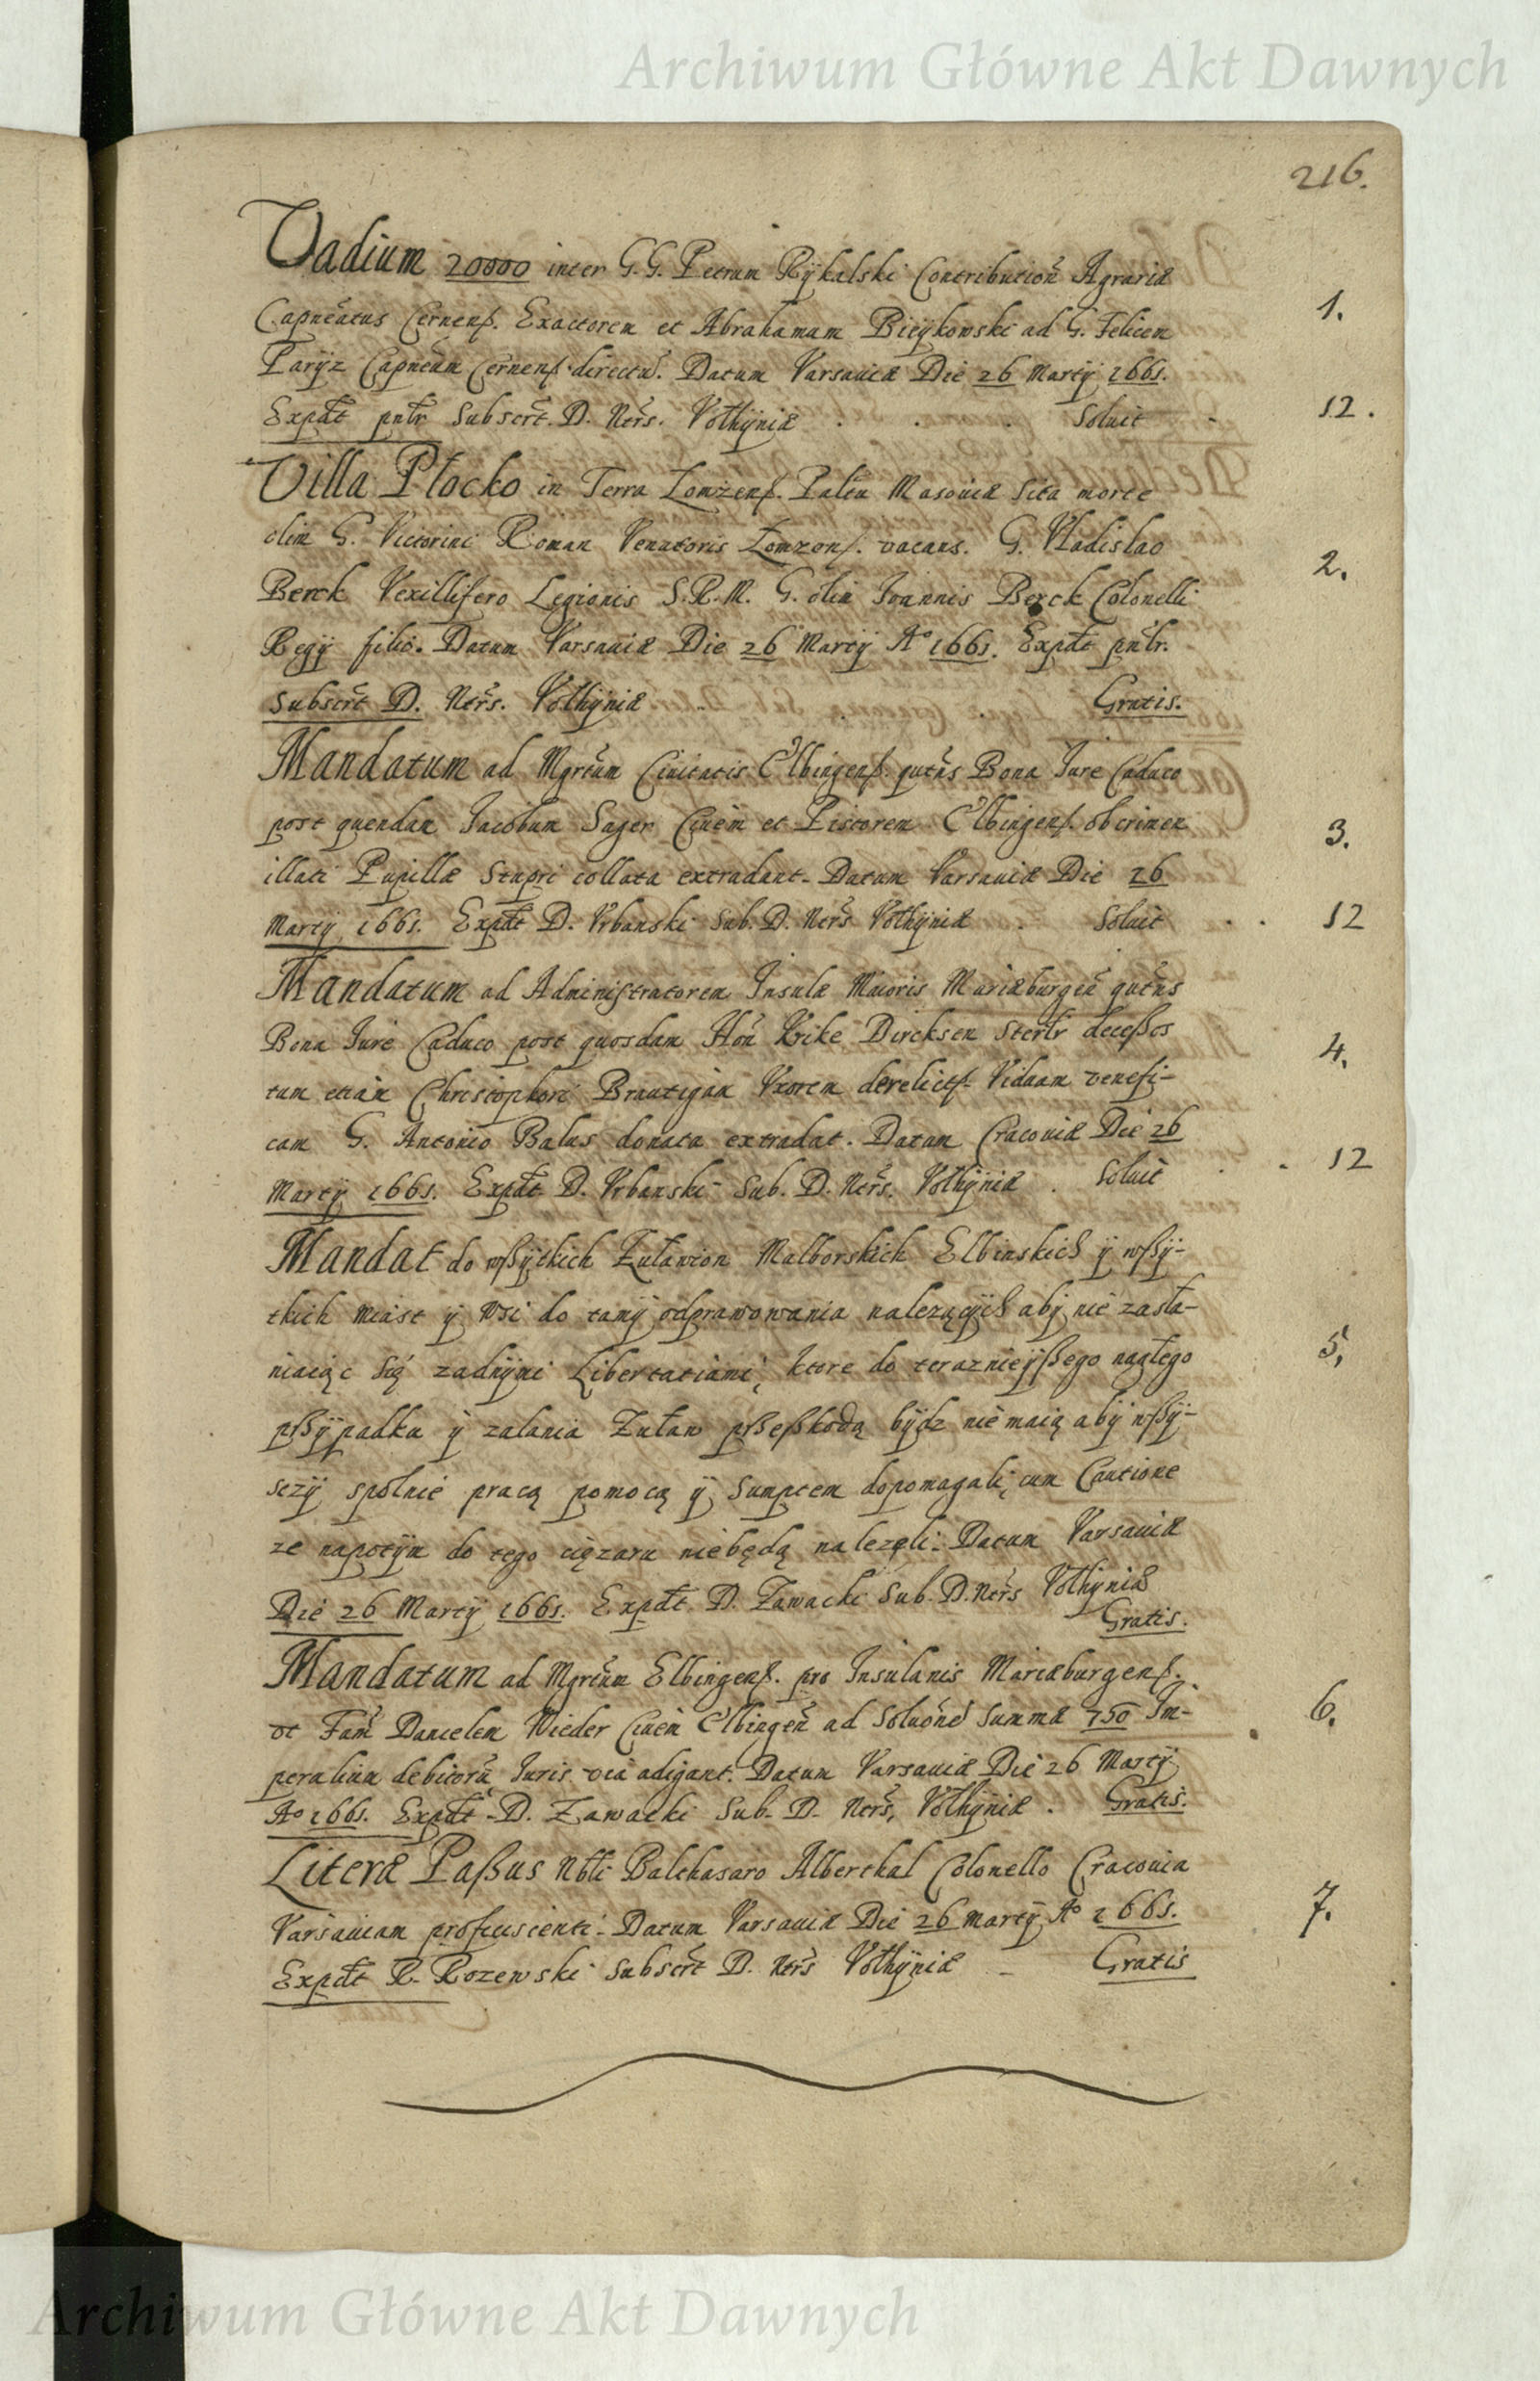 Archiwum Główne Akt Dawnych
216.
Vadium 20000 inter G.G. Petrum Rÿkalski Contribution̄ Agrariæ
Capnēatus Cernenß. Exactorem et Abrahamum Bieÿkowski ad G. Felicem 1.
Parÿz Capnēum Cernenß. directū. Datum Varsauiæ Die 26 Martÿ 1661.
Expdt pntr Subscrt. D. Ntrs. Vołhÿniæ . . . Soluit - 12.
Villa Płocko in Terra Łomzenß. Paltu Masouiæ sita morte
olim G. Victorini Roman Venatoris Łomzenß. vacans. G. Vladislao
Berck Vexillifero Legionis S.R.M. G. olim Ioannis Berck Colonelli 2.
Regÿ filio. Datum Varsauiæ Die 26 Martÿ Aº 1661. Expdt pntr.
Subscrt D. Ntrs. Vołhÿniæ Gratis.
Mandatum ad Mgrtum Ciuitatis Elbingenß. qutns Bona Iure Caduco
post quendam Iacobum Sager Ciuem et Pistorem Elbingenß. ob crimen 3.
illati Pupillæ Stupri collata extradant. Datum Varsauiæ Die 26
Martÿ 1661. Expdt D. Vrbanski Sub. D. Ntrs Vołhÿniæ . Soluit . . 12
Mandatum ad Administratorem Insulæ Maioris Mariæburgen̄ qutns
Bona Iure Caduco post quosdam Hon̄ Krike Dircksen Sterlr deceßos 4.
tum etiam Christophori Brautigam Vxorem derelictß. Viduam venefi-
cam G. Antonio Balus donata extradat. Datum Cracouiæ Die 26
Martÿ 1661. Expdt D. Vrbanski Sub. D. Ntrs. Vołhÿniæ . Soluit . . 12
Mandat do wßÿtkich Zuławion Malborskich Elbinskich ÿ wßÿ-
tkich miast ÿ wsi do tamÿ odprawowania nalezącÿch abÿ nie zasła-
niaiąc się zadnÿmi Libertatiami, ktore do teraznieÿßego nagłego 5,
pßÿpadku ÿ zalania Zuław pßeßkodą bÿdz nie maią abÿ wßÿ-
sczÿ spolnie pracą pomocą ÿ sumptem dopomagali, cum Cautione
ze napotÿm do tego cięzaru niebędą nalezeli. Datum Varsauiæ
Die 26 Martÿ 1661. Expdt D. Zawacki Sub. D. Ntrs Vołhÿniæ
Gratis.
Mandatum ad Mgrtum Elbingenß. pro Insulanis Mariæburgenß.
vt Fam̄ Danielem Wieder Ciuem Elbingen̄ ad Soluōne Summæ 750 Im- 6.
perialium debitorū Iuris via adigant. Datum Varsauiæ Die 26 Martÿ
Aº 1661. Expdt D. Zawacki Sub. D. Ntrs, Vołhÿniæ . Gratis.
Literæ Paßus Nbli Balthasaro Alberthal Colonello Cracouia
Varsauiam proficiscenti. Datum Varsauiæ Die 26 Martÿ Aº 1661. 7.
Expdt R. Rozewski Subscrt D. Ntrs Vołhÿniæ - Gratis
Archiwum Główne Akt Dawnych